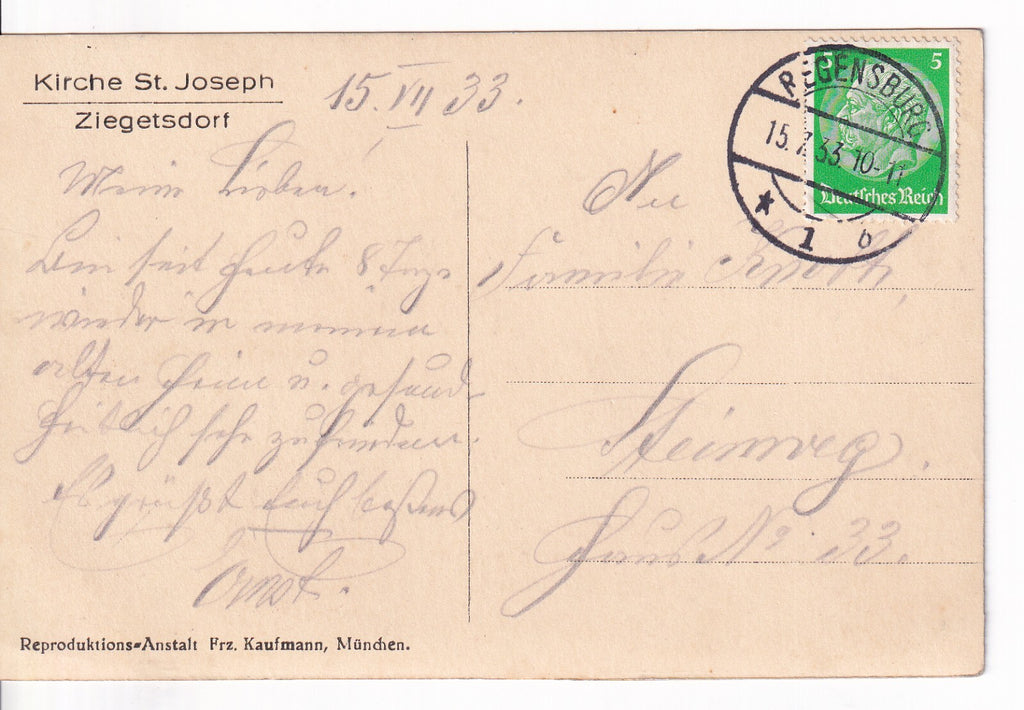 Kirche St. Joseph
Ziegetsdorf
15. VII 33.
Meine Lieben!
Bin seit heute 8 Tage
wieder in meinem
alten Heim u. gesund-
heitlich sehr zufrieden.
Es grüßt Euch bestens
Ernst.
Reproduktions-Anstalt Frz. Kaufmann, München.
5 5
Deutsches Reich
REGENSBURG
15.7.33 10-11
* 1 b
An
Familie
Steinweg.
Haus No 33.